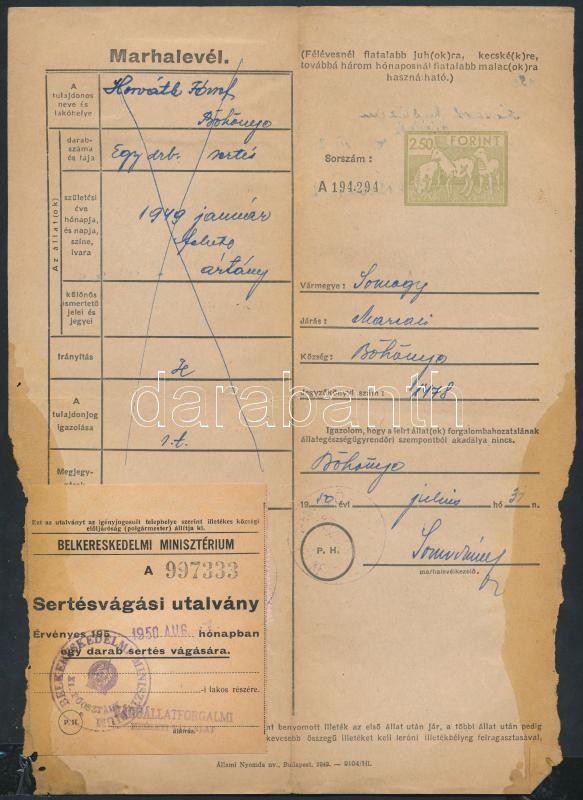 Marhalevél.
(Félévesnél fiatalabb juh(ok)ra, kecské(k)re,
továbbá három hónaposnál fiatalabb malac(ok)ra
használható.)
A
tulajdonos
neve és
lakóhelye
Horváth József
Böhönye
Az állat(ok)
darab-
száma
és fája
Egy drb. sertés
születési
éve
hónapja,
és napja,
színe,
ivara
1949 január
fekete
ártány
különös
ismertető
jelei és
jegyei
Irányítás
A
tulajdonjog
igazolása
s.t.
Megjegy-
Sorszám:
A 194294
2.50 FORINT
Vármegye: Somogy
Járás: Marcali
Község: Böhönye
Jegyzékönyvi szám: 1478
Igazolom, hogy a leírt állat(ok) forgalombahozatalának
állategészségügyrendőri szempontból akadálya nincs.
Böhönye
19 50 évi július hó 31 n.
P. H.
marhalevélkezelő.
darabanth
Ezt az utalványt az igényjogosult telephelye szerint illetékes községi
elöljáróság (polgármester) állítja ki.
BELKERESKEDELMI MINISZTÉRIUM
A 997333
Sertésvágási utalvány
Érvényes 195 1950 AUG. hónapban
egy darab sertés vágására.
-i lakos részére.
BELKERESKEDELMI MINISZT
P. H.
ÁLLATFORGALMI
aláírás.
nt benyomott illeték az első állat után jár, a többi állat után pedig
kevesebb összegű illetéket kell leróni illetékbélyeg felragasztásával,
Állami Nyomda nv., Budapest. 1949. — 9104/Hl.